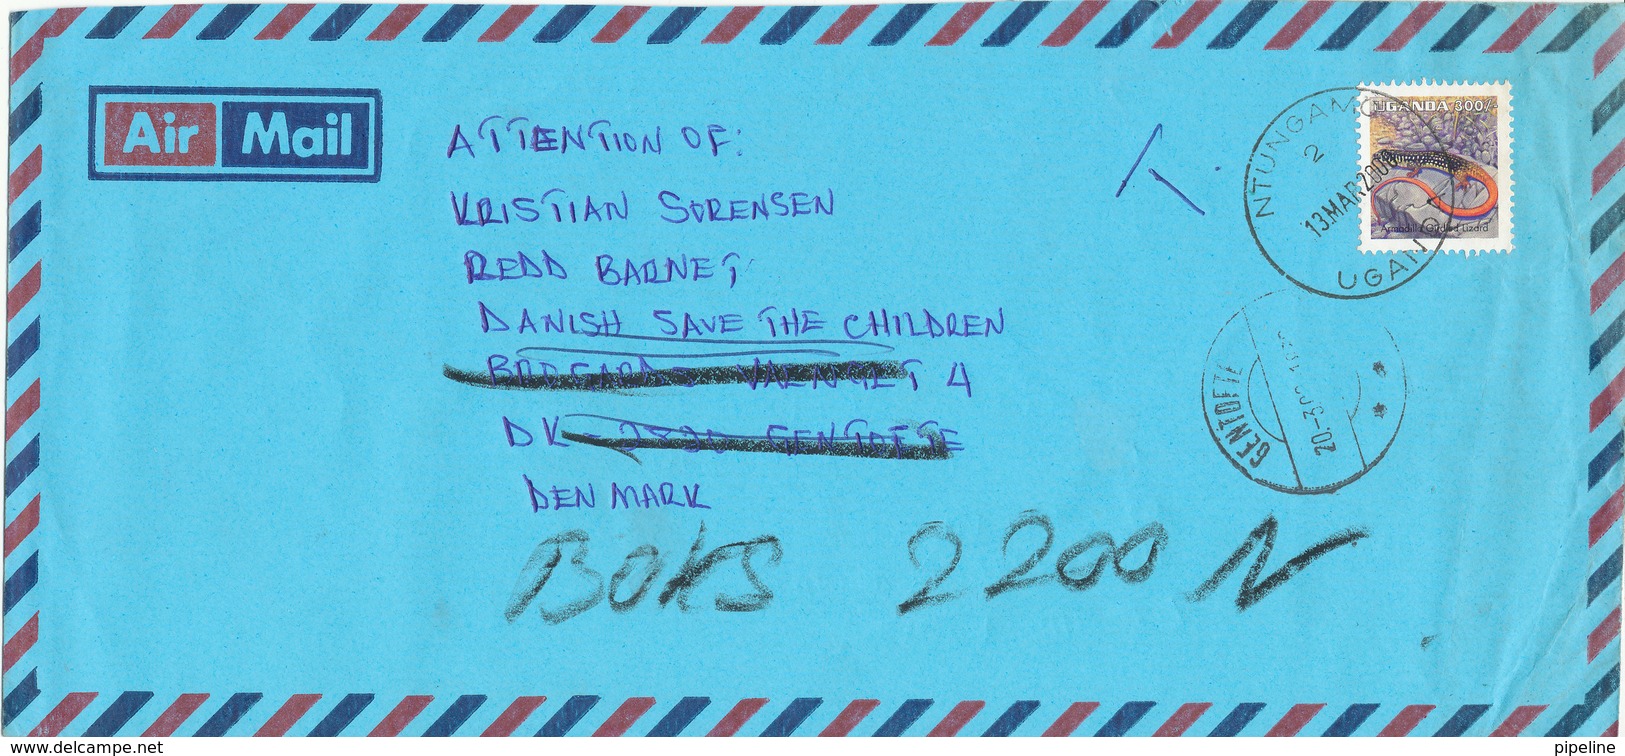 Air Mail
ATTENTION OF:
KRISTIAN SORENSEN
REDD BARNET
DANISH SAVE THE CHILDREN
4
DK - 2820 GENTOFTE
DENMARK
BOKS 2200 N
T.
UGANDA 300/-
Armadillo Girdled Lizard
NTUNGAMO
2
13.MAR2000
UGANDA
GENTOFTE
20.-3.00
www.delcampe.net
pipeline